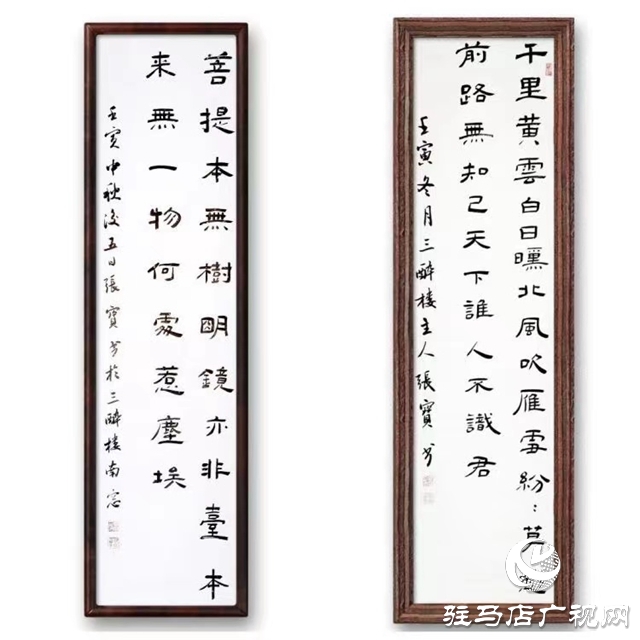 菩提本無樹明鏡亦非臺本
来無一物何處惹塵埃
壬寅中秋後五日張寶书於三醉楼南窓
千里黄雲白日曛北風吹雁雪紛:莫
前路無知己天下誰人不識君
壬寅冬月三醉楼主人張寶书
驻马店广视网